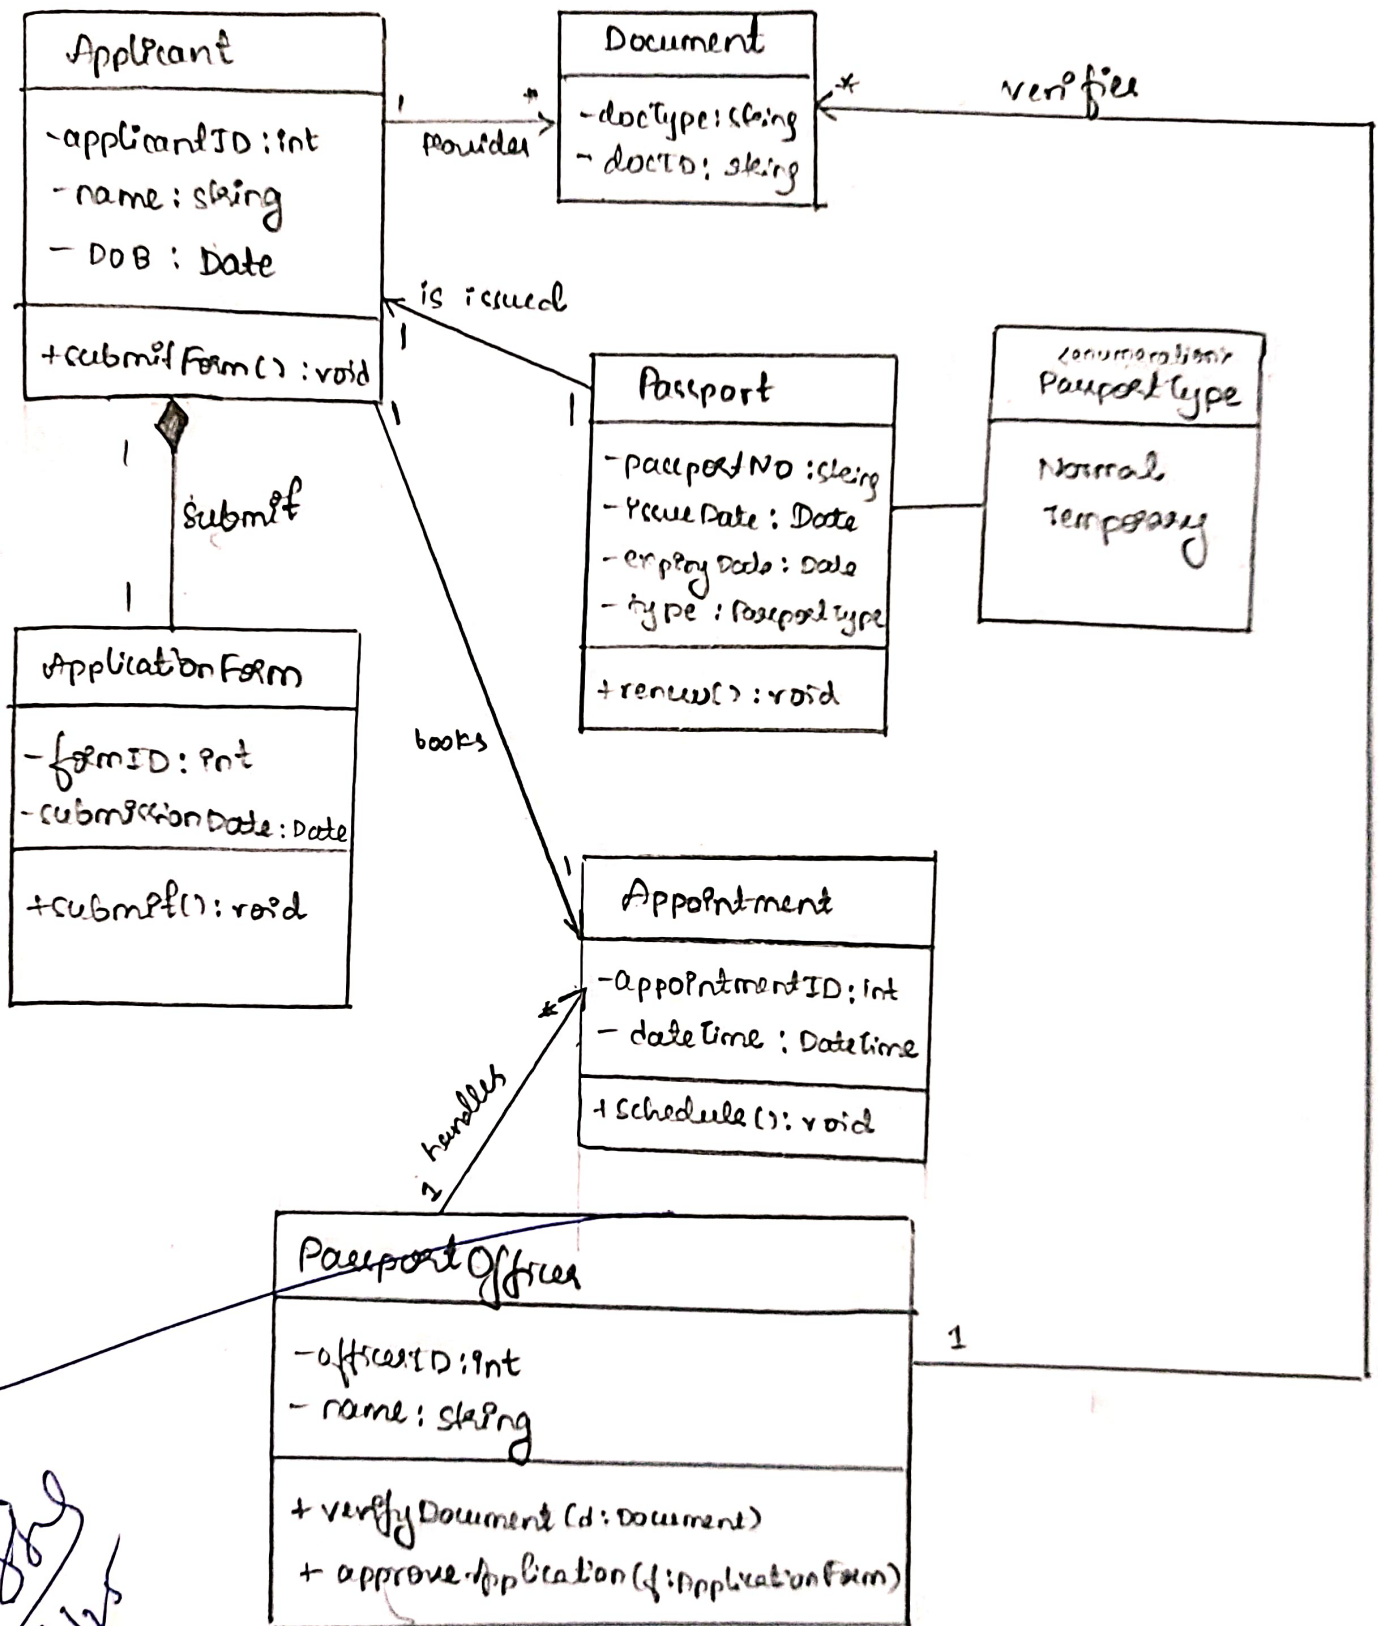 Applicant
-applicantID : int
-name : string
- DOB : Date
+submitForm() : void
1
provides
*
Document
-docType : string
- docID : string
*
verifies
is issued
1
1
Passport
-passportNO : string
-issueDate : Date
-expiryDate : Date
- type : PassportType
+renew() : void
<<enumeration>>
PassportType
Normal
Temporary
1
submit
1
ApplicationForm
-formID : int
-submissionDate : Date
+submit() : void
1
books
1
Appointment
-appointmentID : int
- dateTime : DateTime
+schedule() : void
*
handles
1
PassportOfficer
-officerID : int
- name : string
+ verifyDocument (d : Document)
+ approveApplication (f : ApplicationForm)
1